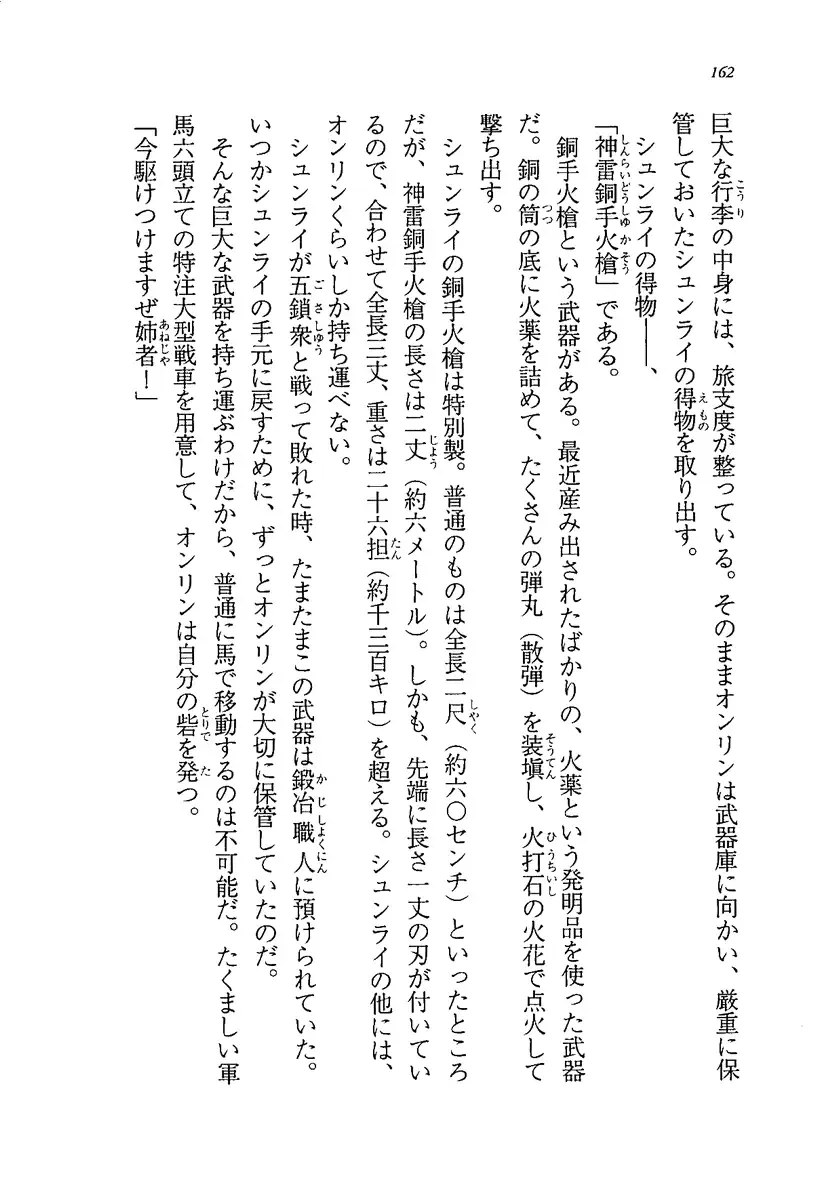 162
巨大な行李の中身には、旅支度が整っている。そのままオンリンは武器庫に向かい、厳重に保
管しておいたシュンライの得物を取り出す。
シュンライの得物――、
「神雷銅手火槍」である。
銅手火槍という武器がある。最近産み出されたばかりの、火薬という発明品を使った武器
だ。銅の筒の底に火薬を詰めて、たくさんの弾丸（散弾）を装塡し、火打石の火花で点火して
撃ち出す。
シュンライの銅手火槍は特別製。普通のものは全長二尺（約六〇センチ）といったところ
だが、神雷銅手火槍の長さは二丈（約六メートル）。しかも、先端に長さ一丈の刃が付いてい
るので、合わせて全長三丈、重さは二十六担（約千三百キロ）を超える。シュンライの他には、
オンリンくらいしか持ち運べない。
シュンライが五鎖衆と戦って敗れた時、たまたまこの武器は鍛冶職人に預けられていた。
いつかシュンライの手元に戻すために、ずっとオンリンが大切に保管していたのだ。
そんな巨大な武器を持ち運ぶわけだから、普通に馬で移動するのは不可能だ。たくましい軍
馬六頭立ての特注大型戦車を用意して、オンリンは自分の砦を発つ。
「今駆けつけますぜ姉者！」